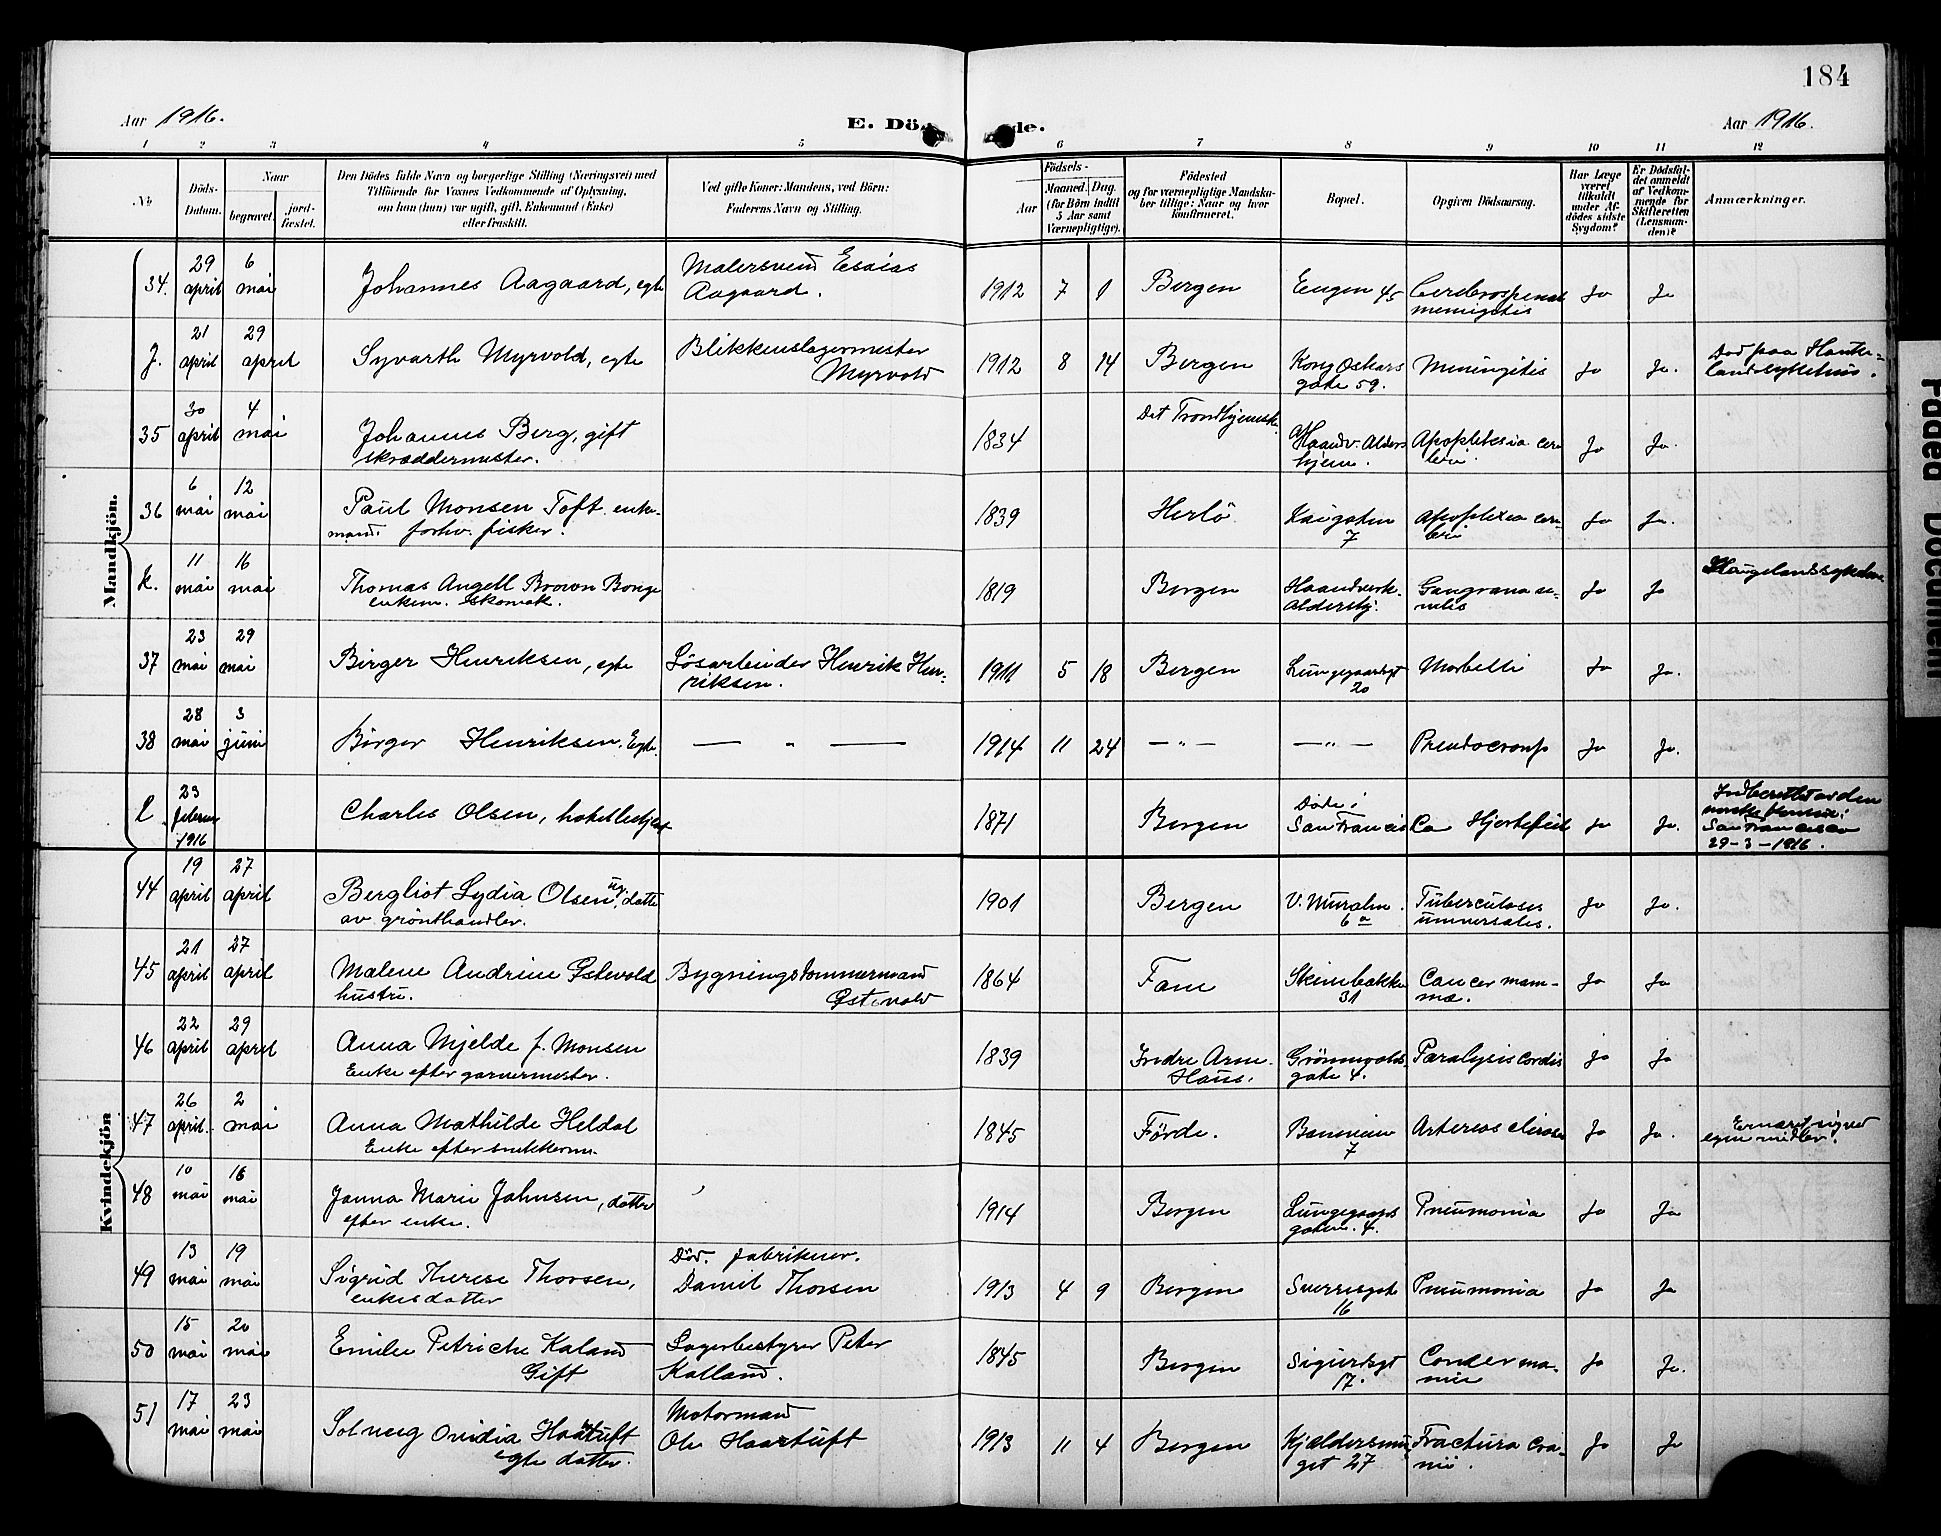 184
Aar 1916.
E. Dö de.
Aar 1916.
1 2 3 4 5 6 7 8 9 10 11 12
No
Döds-Datum.
Naar
begravet.
jord-fæstet.
Den Dödes fulde Navn og borgerlige Stilling (Næringsvei) med
Tilföiende for Voxnes Vedkommende af Oplysning,
om han (hun) var ugift, gift, Enkemand (Enke)
eller fraskilt.
Ved gifte Koner: Mandens, ved Börn:
Faderens Navn og Stilling.
Födsels-
Aar
Maaned. Dag.
(for Börn indtil
5 Aar samt
Værnepligtige).
Födested
og for værnepligtige Mandska-
ber tillige: Naar og hvor
konfirmeret.
Bopæl.
Opgiven Dödsaarsag.
Har Læge
været
tilkaldt
under Af-
dödes sidste
Sygdom?
Er Dödsfal-
det anmeldt
af Vedkom-
mende for
Skifteretten
(Lensman-
den)?
Anmærkninger.
Mandkjön.
34. 29 april 6 mai Johannes Aagaard, egte Malersvend Esaias Aagaard. 1912 7 1 Bergen Engen 45 Cerebrospinal meningitis Ja Ja
J. 21 april 29 april Syvarth Myrvold, egte Blikkenslagermester Myrvold 1912 8 14 Bergen Kong Oskars gate 59. Meningitis Ja Ja. Död paa
35 30 april 4 mai Johannes Berg, gift skræddermester. 1834 Det Trondhjemske. Haandv. Alders hjem. Apoplexia cerebri Ja Ja.
36 6 mai 12 mai Paul Monsen Toft. enkemand. forhv. fisker. 1839 Herlö Kaigaten 7 Apoplexia cerebri Ja Ja.
K. 11 mai 16 mai Thomas Angell Brown Bonge enkem. skomak. 1819 Bergen Haandverk. aldershj. Gangræna senilis Ja Ja Haugelandssykehus
37 23 mai 29 mai Birger Henriksen, egte Lösarbeider Henrik Henriksen. 1911 5 18 Bergen Lungegaardsgt 20 Morbilli Ja Ja.
38 28 mai 3 juni Börger Henriksen, Egte. — " — 1914 11 24 — " — — " — Pseudocroup Ja Ja.
L. 23 februar 1916 Charles Olsen, 1871 Bergen Döde i San Francisco Hjertefeil Ja Ja. Indberettet av den norske konsul i San Francisco 29-3-1916.
Kvindekjön
44 19 april 27 april Bergliot Lydia Olsen, ug. datter av grönthandler. 1901 Bergen V. Muralm. 6a Tuberculosis universalis. Ja Ja.
45 21 april 27 april Malene Andrine Östevold hustru. Bygningstömmermand Östevold 1864 Fane Skivebakken 31 Cancer mammæ. Ja Ja
46 22 april 29 april Anna Mjelde f. Monsen Enke efter garvermester. 1839 Indre Arne. Haus. Grönnevolds gate 4. Paralysis cordis Ja Ja
47 26 april. 2 mai Anna Mathilde Heldal Enke efter snekkerm. 1845 Förde. 7 Arteriosclerose Ja Ja. Ernæret sig ved egne midler.
48 10 mai 16 mai Janna Marie Johnsen, datter efter enke. 1914 Bergen Lungegaards gaten. 4. Pneumonia Ja Ja
49 13 mai 19 mai Sigrid Therese Thorsen, enkes datter Död. fabrikeier. Daniel Thorsen 1913 4 9 Bergen Sverresgate 16 Pneumonia Ja Ja
50 15 mai 20 mai Emilie Petriche Kaland Gift Lagerbestyrer Peter Kalland. 1845 Bergen Sigurdsgt 17. Ja Ja.
51 17 mai 23 mai Solveig Ovidia Haartuft egte datter. Motormand Ole Haartuft 1913 11 4 Bergen Kjældersmuget 27 Fractura cranii. Ja Ja
Faded Document